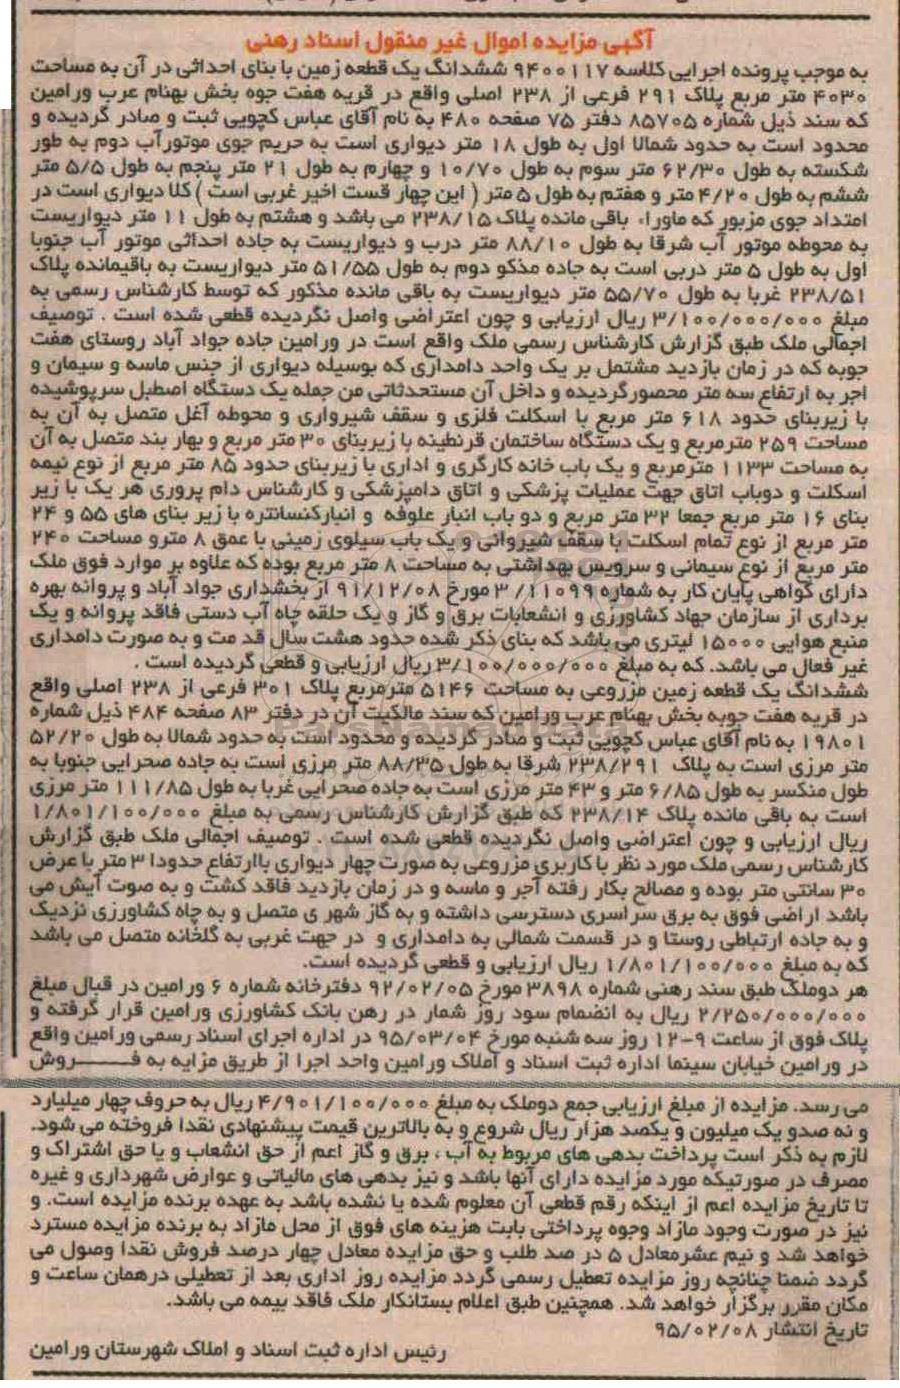 آگهی مزایده اموال غیر منقول اسناد رهنی
به موجب پرونده اجرایی کلاسه ۹۴۰۰۱۱۷ ششدانگ یک قطعه زمین با بنای احداثی در آن به مساحت
۴۰۳۰ متر مربع پلاک ۲۹۱ فرعی از ۲۳۸ اصلی واقع در قریه هفت جوبه بخش بهنام عرب ورامین
که سند ذیل شماره ۸۵۷۰۵ دفتر ۷۵ صفحه ۴۸۰ به نام آقای عباس کچویی ثبت و صادر گردیده و
محدود است به حدود شمالا اول به طول ۱۸ متر دیواری است به حریم جوی موتورآب دوم به طور
شکسته به طول ۶۲/۳۰ متر سوم به طول ۱۰/۷۰ و چهارم به طول ۲۱ متر پنجم به طول ۵/۵ متر
ششم به طول ۴/۲۰ متر و هفتم به طول ۵ متر ( این چهار قست اخیر غربی است ) کلا دیواری است در
امتداد جوی مزبور که ماوراء باقی مانده پلاک ۲۳۸/۱۵ می باشد و هشتم به طول ۱۱ متر دیواریست
به محوطه موتور آب شرقا به طول ۸۸/۱۰ متر درب و دیواریست به جاده احداثی موتور آب جنوبا
اول به طول ۵ متر دربی است به جاده مذکو دوم به طول ۵۱/۵۵ متر دیواریست به باقیمانده پلاک
۲۳۸/۵۱ غربا به طول ۵۵/۷۰ متر دیواریست به باقی مانده مذکور که توسط کارشناس رسمی به
مبلغ ۳/۱۰۰/۰۰۰/۰۰۰ ریال ارزیابی و چون اعتراضی واصل نگردیده قطعی شده است . توصیف
اجمالی ملک طبق گزارش کارشناس رسمی ملک واقع است در ورامین جاده جواد آباد روستای هفت
جوبه که در زمان بازدید مشتمل بر یک واحد دامداری که بوسیله دیواری از جنس ماسه و سیمان و
اجر به ارتفاع سه متر محصورگردیده و داخل آن مستحدثاتی من جمله یک دستگاه اصطبل سرپوشیده
با زیربنای حدود ۶۱۸ متر مربع با اسکلت فلزی و سقف شیرواری و محوطه آغل متصل به آن به
مساحت ۲۵۹ مترمربع و یک دستگاه ساختمان قرنطینه با زیربنای ۳۰ متر مربع و بهار بند متصل به آن
به مساحت ۱۱۳۳ مترمربع و یک باب خانه کارگری و اداری با زیربنای حدود ۸۵ متر مربع از نوع نیمه
اسکلت و دوباب اتاق جهت عملیات پزشکی و اتاق دامپزشکی و کارشناس دام پروری هر یک با زیر
بنای ۱۶ متر مربع جمعا ۳۲ متر مربع و دو باب انبار علوفه و انبارکنسانتره با زیر بنای های ۵۵ و ۲۴
متر مربع از نوع تمام اسکلت با سقف شیروانی و یک باب سیلوی زمینی با عمق ۸ مترو مساحت ۲۴۰
متر مربع از نوع سیمانی و سرویس بهداشتی به مساحت ۸ متر مربع بوده که علاوه بر موارد فوق ملک
دارای گواهی پایان کار به شماره ۳/۱۱۰۹۹ مورخ ۹۱/۱۲/۰۸ از بخشداری جواد آباد و پروانه بهره
برداری از سازمان جهاد کشاورزی و انشعابات برق و گاز و یک حلقه چاه آب دستی فاقد پروانه و یک
منبع هوایی ۱۵۰۰۰ لیتری می باشد که بنای ذکر شده حدود هشت سال قد مت و به صورت دامداری
غیر فعال می باشد. که به مبلغ ۳/۱۰۰/۰۰۰/۰۰۰ ریال ارزیابی و قطعی گردیده است .
ششدانگ یک قطعه زمین مزروعی به مساحت ۵۱۴۶ مترمربع پلاک ۳۰۱ فرعی از ۲۳۸ اصلی واقع
در قریه هفت جوبه بخش بهنام عرب ورامین که سند مالکیت آن در دفتر ۸۳ صفحه ۴۸۴ ذیل شماره
۱۹۸۰۱ به نام آقای عباس کچویی ثبت و صادر گردیده و محدود است به حدود شمالا به طول ۵۲/۲۰
متر مرزی است به پلاک ۲۳۸/۲۹۱ شرقا به طول ۸۸/۳۵ متر مرزی است به جاده صحرایی جنوبا به
طول منکسر به طول ۶/۸۵ متر و ۴۳ متر مرزی است به جاده صحرایی غربا به طول ۱۱۱/۸۵ متر مرزی
است به باقی مانده پلاک ۲۳۸/۱۴ که طبق گزارش کارشناس رسمی به مبلغ ۱/۸۰۱/۱۰۰/۰۰۰
ریال ارزیابی و چون اعتراضی واصل نگردیده قطعی شده است . توصیف اجمالی ملک طبق گزارش
کارشناس رسمی ملک مورد نظر با کاربری مزروعی به صورت چهار دیواری باارتفاع حدودا ۳ متر با عرض
۳۰ سانتی متر بوده و مصالح بکار رفته آجر و ماسه و در زمان بازدید فاقد کشت و به صوت آیش می
باشد اراضی فوق به برق سراسری دسترسی داشته و به گاز شهر ی متصل و به چاه کشاورزی نزدیک
و به جاده ارتباطی روستا و در قسمت شمالی به دامداری و در جهت غربی به گلخانه متصل می باشد
که به مبلغ ۱/۸۰۱/۱۰۰/۰۰۰ ریال ارزیابی و قطعی گردیده است.
هر دوملک طبق سند رهنی شماره ۳۸۹۸ مورخ ۹۲/۰۲/۰۵ دفترخانه شماره ۶ ورامین در قبال مبلغ
۲/۲۵۰/۰۰۰/۰۰۰ ریال به انضمام سود روز شمار در رهن بانک کشاورزی ورامین قرار گرفته و
پلاک فوق از ساعت ۹-۱۲ روز سه شنبه مورخ ۹۵/۰۳/۰۴ در اداره اجرای اسناد رسمی ورامین واقع
در ورامین خیابان سینما اداره ثبت اسناد و املاک ورامین واحد اجرا از طریق مزایه به فــــروش
می رسد. مزایده از مبلغ ارزیابی جمع دوملک به مبلغ ۴/۹۰۱/۱۰۰/۰۰۰ ریال به حروف چهار میلیارد
و نه صدو یک میلیون و یکصد هزار ریال شروع و به بالاترین قیمت پیشنهادی نقدا فروخته می شود.
لازم به ذکر است پرداخت بدهی های مربوط به آب ، برق و گاز اعم از حق انشعاب و یا حق اشتراک و
مصرف در صورتیکه مورد مزایده دارای آنها باشد و نیز بدهی های مالیاتی و عوارض شهرداری و غیره
تا تاریخ مزایده اعم از اینکه رقم قطعی آن معلوم شده یا نشده باشد به عهده برنده مزایده است. و
نیز در صورت وجود مازاد وجوه پرداختی بابت هزینه های فوق از محل مازاد به برنده مزایده مسترد
خواهد شد و نیم عشرمعادل ۵ در صد طلب و حق مزایده معادل چهار درصد فروش نقدا وصول می
گردد ضمنا چنانچه روز مزایده تعطیل رسمی گردد مزایده روز اداری بعد از تعطیلی درهمان ساعت و
مکان مقرر برگزار خواهد شد. همچنین طبق اعلام بستانکار ملک فاقد بیمه می باشد.
تاریخ انتشار ۹۵/۰۲/۰۸
رئیس اداره ثبت اسناد و املاک شهرستان ورامین